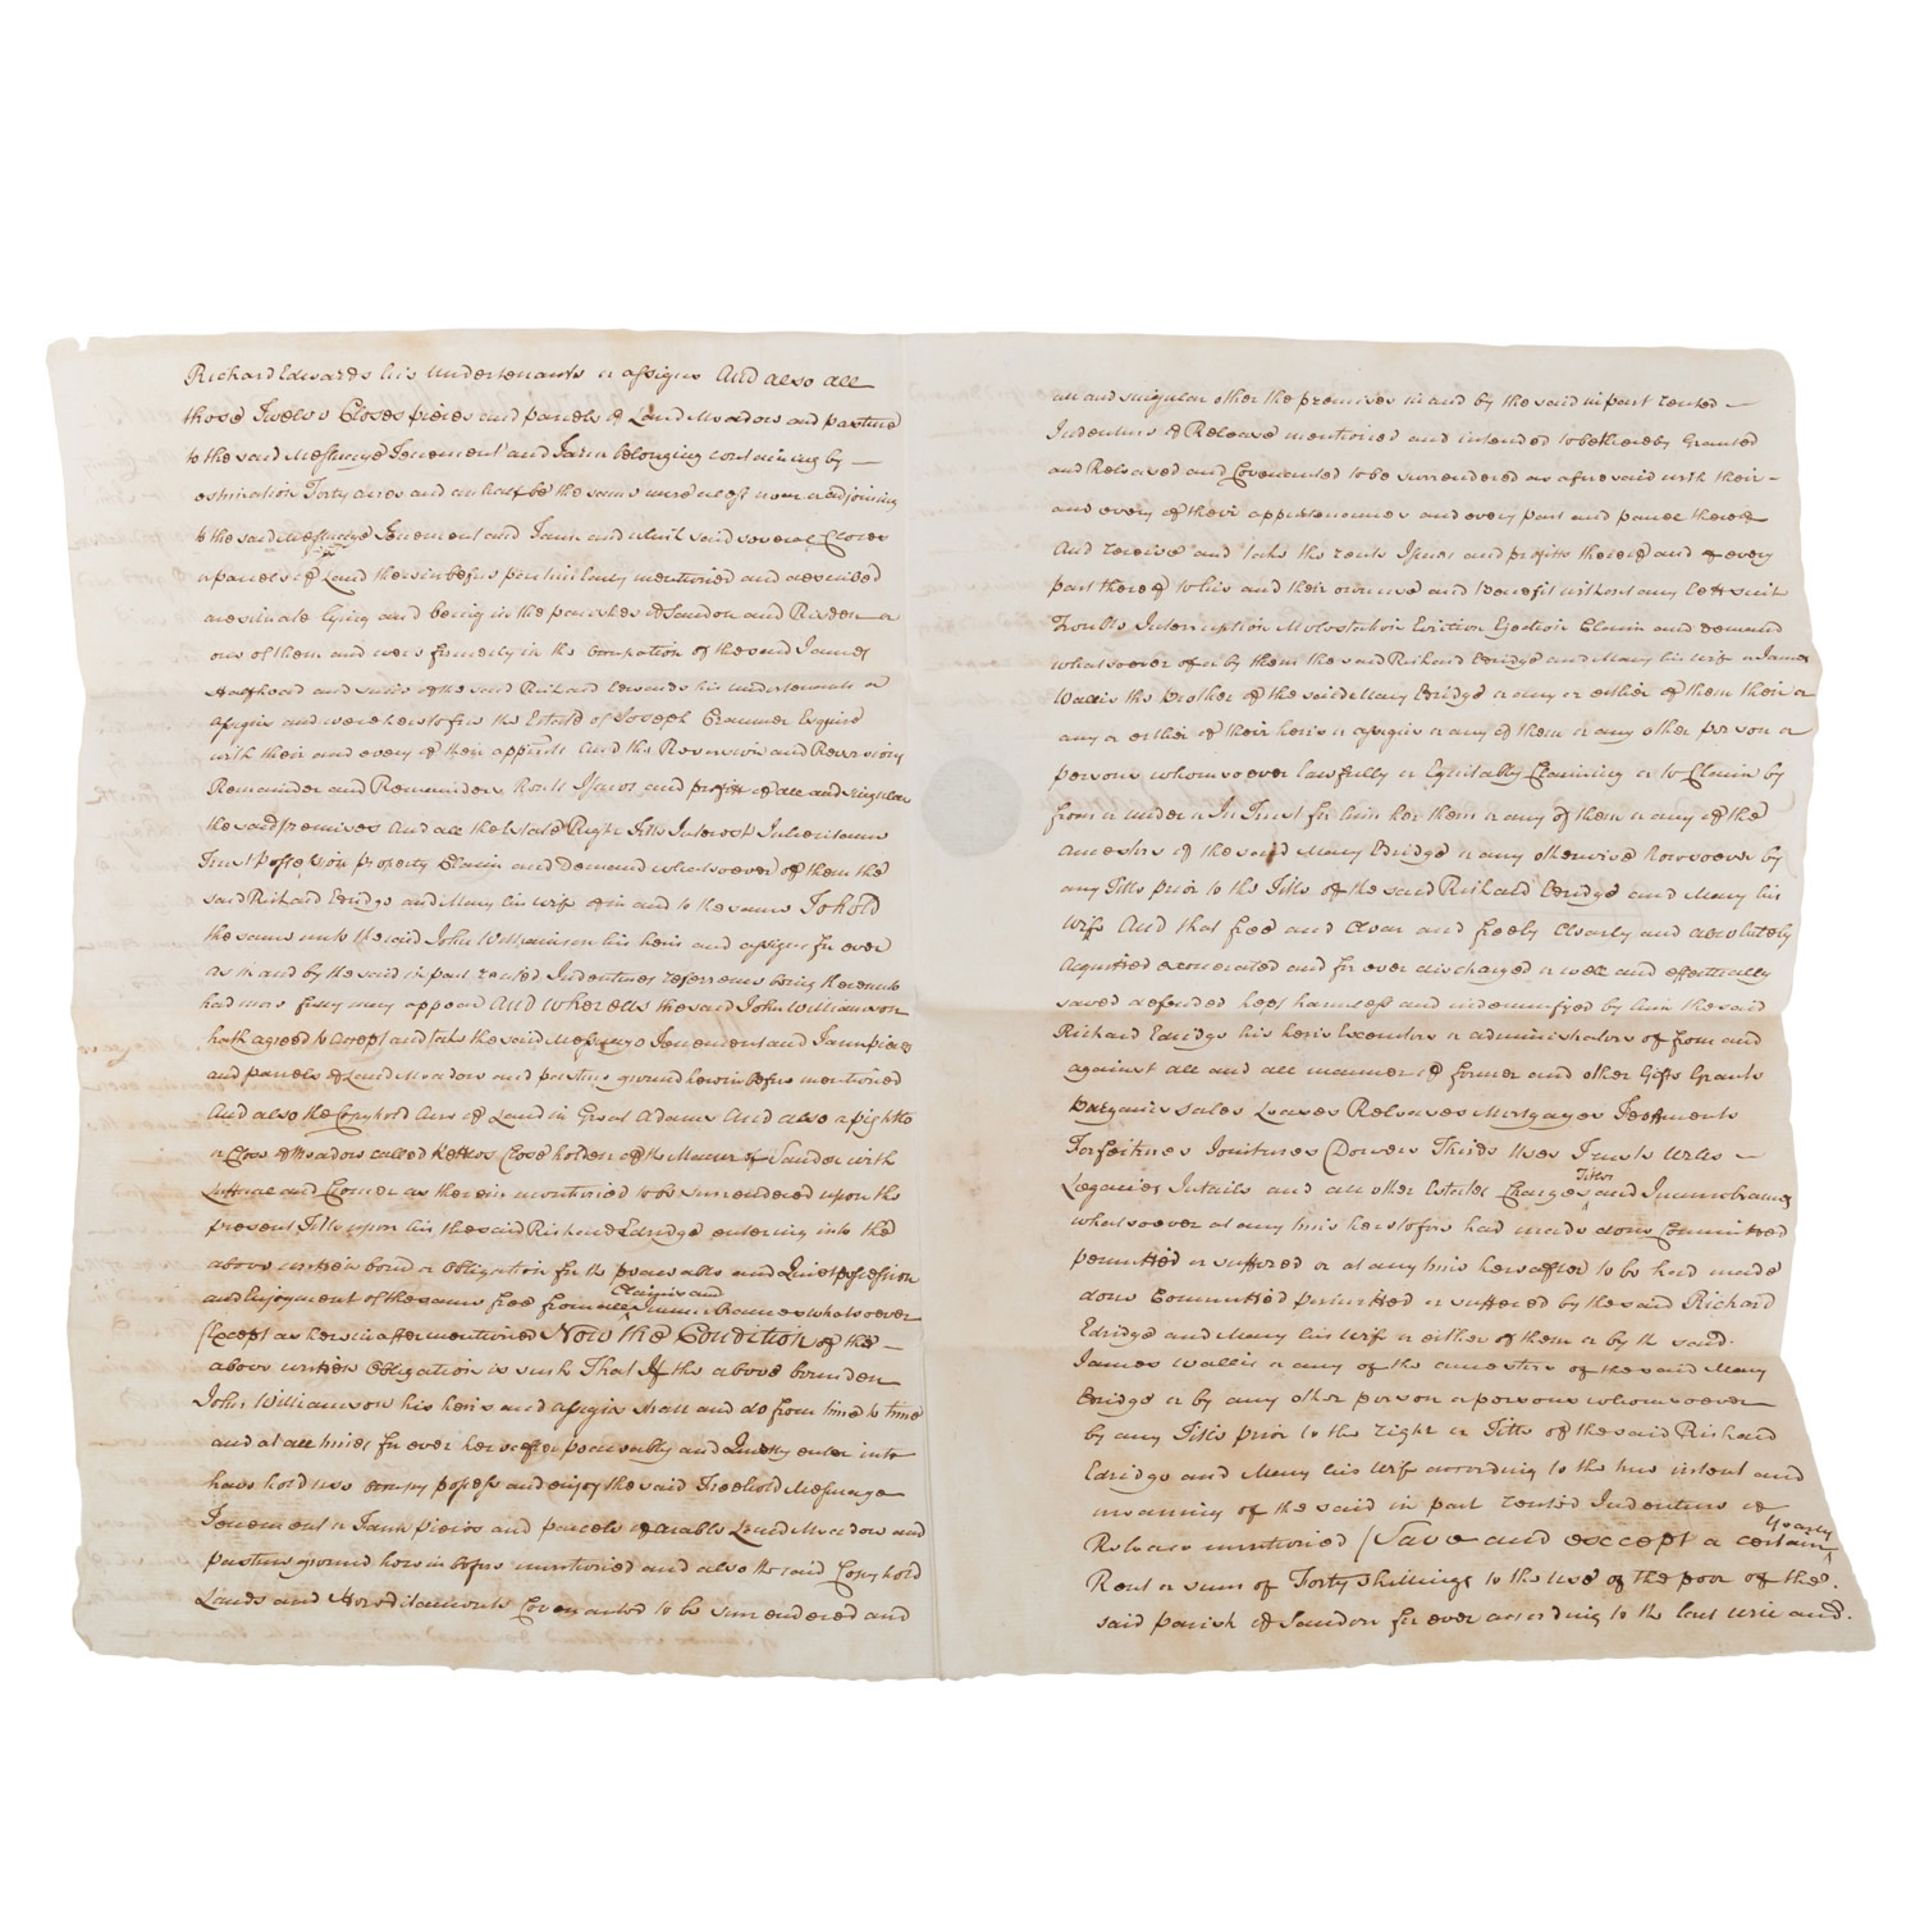 Richard Edwards his undertenants or assigns And also all
those Twelve Closes pieces and parcels of Land Meadow and pasture
to the said Messuage Tenement and Farm belonging containing by
estimation Forty acres and an half be the same more or less near adjoining
to the said Messuage Tenement and Farm and which said several Closes
or parcels of Land therein before particularly mentioned and described
are situate lying and being in the parishes of Sandon and or
one of them and were formerly in the occupation of the said James
Halfhead and since of the said Richard Edwards his undertenants or
assigns and were heretofore the Estate of Joseph Cranmer Esquire
with their and every of their apprts And the Reversion and Reversions
Remainder and Remainders Rents Issues and profitts of all and singular
the said premises And all the Estate Right Title Interest Inheritance
Trust possession property Claim and Demand whatsoever of them the
said Richard Edridge and Mary his wife of in and to the same To hold
the same unto the said John Williamson his heirs and assigns for ever
As in and by the said in part recited Indentures referrence being thereunto
had more fully may appear And whereas the said John Williamson
hath agreed to accept and take the said Messuage Tenement and Farm pieces
and parcels of Land Meadow and pasture ground herein before mentioned
And also the Copyhold Acre of Land in Great Adams And also a right to
a Close of Meadow called Kettles Close holden of the Manor of Sandon with
and Corner as therein mentioned to be surrendered upon the
present Title upon his the said Richard Edridge entering into the
above written bond or Obligation for the peaceable and Quiet possession
and Enjoyment of the same free from all Claims and Incumbrances whatsoever
(Except as herein after mentioned Now the Condition of the
above written Obligation is such That If the above bounden
John Williamson his heirs and assigns shall and do from time to time
and at all times for ever hereafter peaceably and Quietly enter into
have hold use occupy possess and enjoy the said Freehold Messuage
Tenement or Farm pieces and parcels of arable Land Meadow and
pasture ground herein before mentioned and also the said Copyhold
Lands and Hereditaments Covenanted to be surrendered and
all and singular other the premises in and by the said in part recited
Indenture of Release mentioned and intended to be thereby Granted
and Released and Covenanted to be surrendered as aforesaid with their
and every of their appurtenances and every part and parcel thereof
And receive and take the rents Issues and profitts thereof and of every
part thereof to his and their own use and benefit without any lett suit
Trouble Interruption Molestation Eviction Ejection Claim and demand
whatsoever of or by them the said Richard Edridge and Mary his wife or James
Wallis the brother of the said Mary Edridge or any or either of them their or
any or either of their heirs or assigns or any of them or any other person or
persons whomsoever lawfully or Equitably Claiming or to Claim by
from or under or In Trust for him her them or any of them or any of the
Ancestors of the said Mary Edridge or any otherwise howsoever by
any Title prior to the Title of the said Richard Edridge and Mary his
wife And that free and clear and freely clearly and absolutely
Acquitted exonerated and for ever discharged or well and effectually
saved defended kept harmless and indemnifyed by him the said
Richard Edridge his heirs Executors or administrators of from and
against all and all manner of former and other Gifts Grants
Bargains sales Leases Releases Mortgages Feoffments
Forfeitures Jointures Dowers Thirds Uses Trusts Wills
Legacies Intails and all other Estates Charges Titles and Incumbrances
whatsoever at any time heretofore had made done Committed
permitted or suffered or at any time hereafter to be had made
done Committed permitted or suffered by the said Richard
Edridge and Mary his wife or either of them or by the said
James Wallis or any of the ancestors of the said Mary
Edridge or by any other person or persons whomsoever
by any Title prior to the right or Title of the said Richard
Edridge and Mary his wife according to the true intent and
meaning of the said in part recited Indenture of
Release mentioned (Save and except a certain Yearly
Rent or sum of Forty Shillings to the use of the poor of the
said parish of Sandon for ever according to the last will and